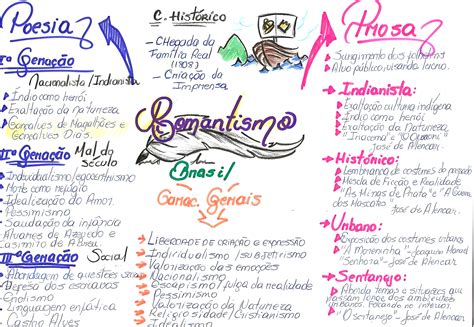 Poesia
Iª Geração
Nacionalista/Indianista
Índio como herói
Exaltação da natureza
Gonçalves de Magalhães e
Gonçalves Dias.
IIª Geração Mal do
século
Individualismo/egocentrismo
Morte como refúgio
Idealização do Amor
Pessimismo
Saudação da infância
Álvares de Azevedo e
Casimiro de Abreu.
IIIª Geração Social
Abordagem de questões sociais
Defesa dos escravos
Erotismo
Linguagem enfática
Castro Alves
C. Histórico
- Chegada da
Família Real
- Criação da
Imprensa
Romantismo
Brasil
Carac. Gerais
Liberdade de criação e expressão
Individualismo/subjetivismo
Valorização das emoções
Nacionalismo
Escapismo/fulga da realidade
Pessimismo
Valorização da Natureza
Religiosidade/Cristianismo
Prosa
Surgimento dos folhetins
Alvo público, visando lucro.
Indianista:
Exaltação cultura indígena
Índio como herói.
Exaltação da Natureza
"Iracema" e "O Guarani"
José de Alencar.
Histórico:
Lembrança de costumes do passado
Mescla de Ficção e Realidade
"As Minas de Prata" e "Guerra
José de Alencar.
Urbano:
Exposição dos costumes urbanos
"A Moreninha" - Joaquim Manoel
"Senhora" - José de Alencar.
Sertanejo:
Aborda temas e situações que
passam longe dos ambientes
urbanos. Focando no interior
"O sertanejo" - José de Alencar